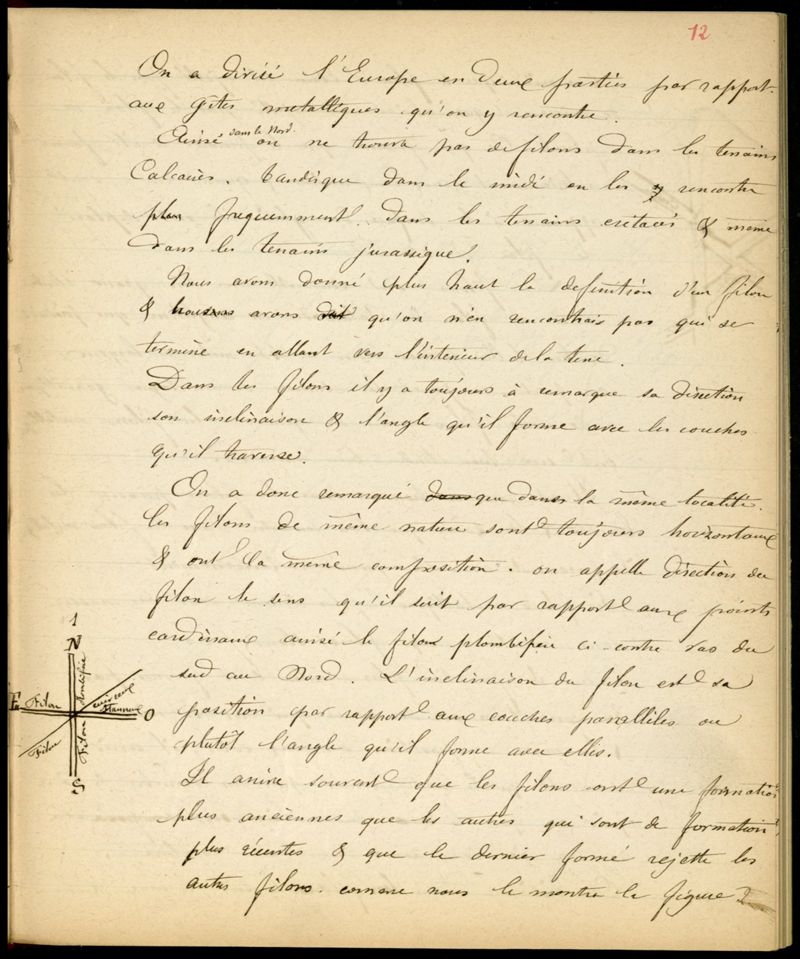 12
On a divisé l'Europe en deux parties par rapport
aux gites metalliques qu'on y rencontre.
Ainsi dans le Nord on ne trouva pas de filons dans les terrains
Calcaires. tandisque dans le midi on les y rencontre
plus frequemment dans les terrains crétacés & même
dans les terrains jurassique.
Nous avons donné plus haut la definition d'un filon
& avons dit qu'on n'en rencontrais pas qui se
termine en allant vers l'interieur de la terre.
Dans les filons il y a toujours à remarque sa direction
son inclinaison & l'angle qu'il forme avec les couches
qu'il traverse.
On a donc remarqué dans que dans la même localité.
les filons de même nature sont toujours horizontaux
& ont la même composition. on appelle direction du
filon le sens qu'il suit par rapport aux points
cardinaux ainsi le filon plombifère ci-contre vas du
sud au Nord. L'inclinaison du filon est sa
position par rapport aux couches parallèles ou
plutôt l'angle qu'il forme avec elles.
Il arrive souvent que les filons ont une formation
plus anciennes que les autres qui sont de formation
plus récentes & que le dernier formé rejette les
autres filons. comme nous le montre la figure 2
1
N
E Filon Stanneux O
Filon Plombifère
Filon cuivreux
S